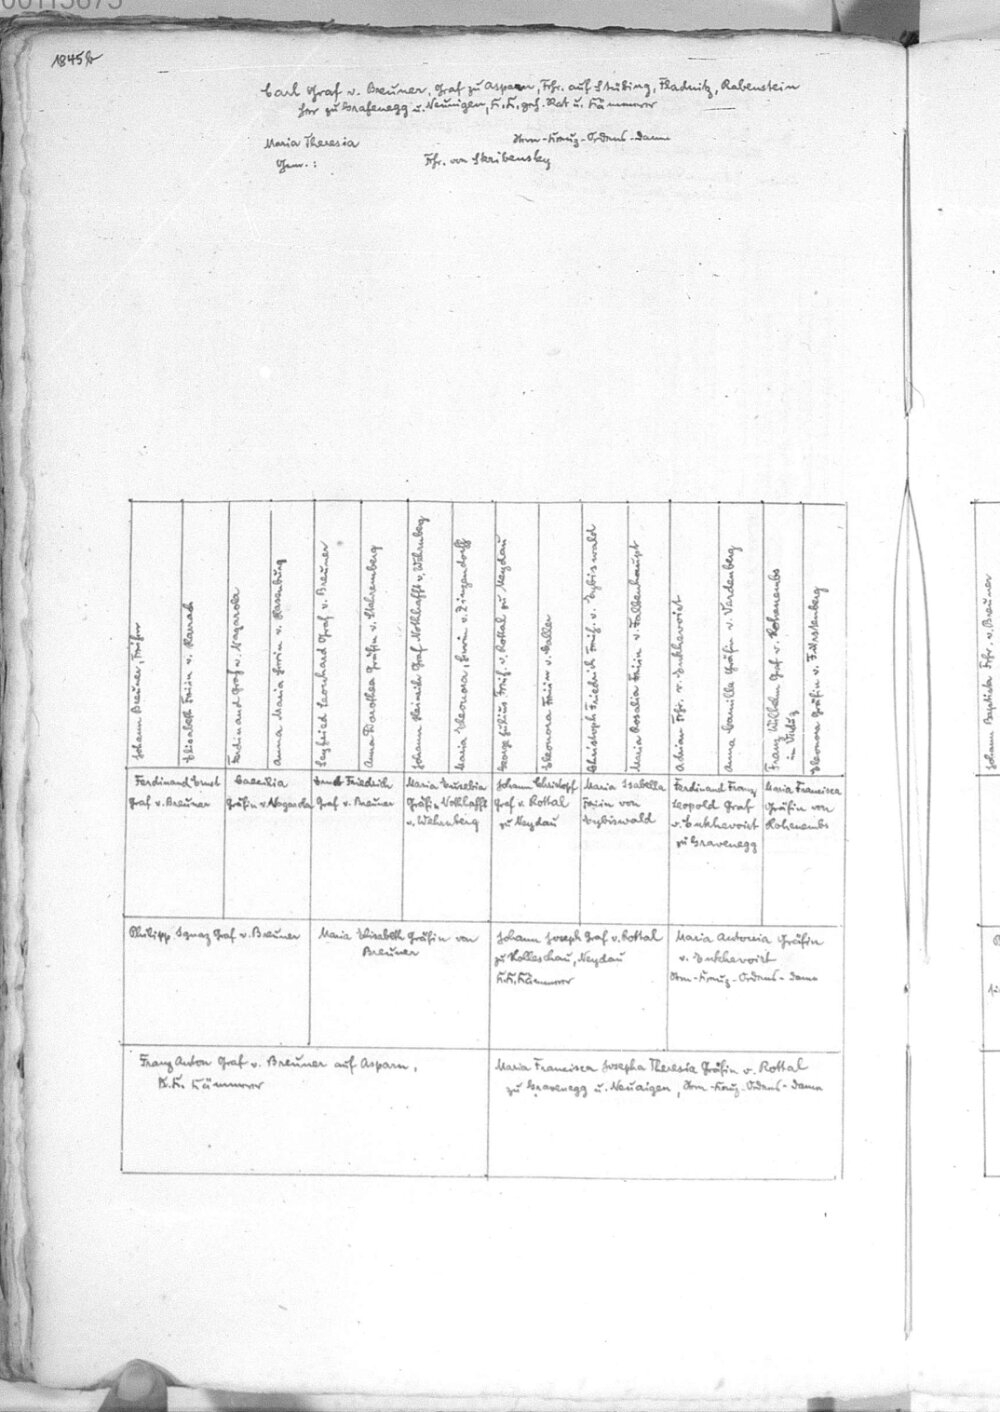 00113675
1845 b
Carl Graf v. Breuner, Graf zu Asparn, Frhr. auf Stübing, Fladnitz, Rabenstein
Herr zu Grafenegg u. Neuaigen, K.K. geh. Rat u. Kämmerer
Maria Theresia Stern-Kreuz-Ordens-Dame
Gem.: Frhr. von Skribensky
Johann Breuner, Freiherr
Elisabeth Freiin v. Harrach
Ferdinand Graf v. Nagarola
Anna Maria Herrin v. Rasenburg
Seyfried Leonhard Graf v. Breuner
Anna Dorothea Gräfin v. Stahremberg
Johann Heinrich Graf Nothhafft v. Wehrnberg
Maria Eleonora, Herrin v. Zinzendorff
George Julius Freih. v. Rottal zu Neydau
Eleonora Freiin v. Galler
Christoph Friedrich Freih. v. Eybiswald
Maria Rosalia Freiin v. Falbenhaupt
Adrian Frhr. v. Enkhevoirt
Anna Camilla Gräfin v. Verdenberg
Franz Wilhelm Graf v. Hohenembs
in Vaduz
Eleonora Gräfin v. Fürstenberg
Ferdinand Ernst
Graf v. Breuner
Caecilia
Gräfin v. Nagarola
Ernst Friedrich
Graf v. Breuner
Maria Eusebia
Gräfin Nothhafft
v. Wehrnberg
Johann Christoph
Graf v. Rottal
zu Neydau
Maria Isabella
Freiin von
Eybiswald
Ferdinand Franz
Leopold Graf
v. Enkhevoirt
zu Gravenegg
Maria Francisca
Gräfin von
Hohenembs
Philipp Ignaz Graf v. Breuner
Maria Elisabeth Gräfin von
Breuner
Johann Joseph Graf v. Rottal
zu Holleschau, Neydau
K.K. Kämmerer
Maria Antonia Gräfin
v. Enkhevoirt
Stern-Kreuz-Ordens-Dame
Franz Anton Graf v. Breuner auf Asparn,
K.K. Kämmerer
Maria Francisca Josepha Theresia Gräfin v. Rottal
zu Gravenegg u. Neuaigen, Stern-Kreuz-Ordens-Dame
Johann Baptista Frhr. v. Breuner